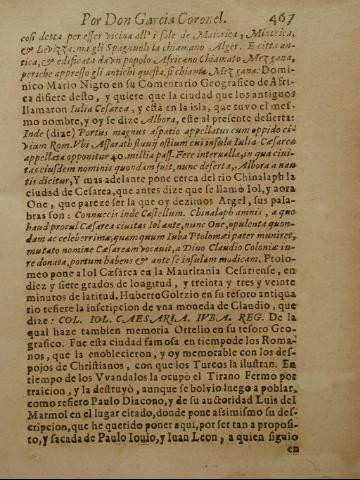 Por Don Garcia Coronel. 467
cosi detta per esser vicina all'isole de Maiorica, Minorica,
& Levizza. ma gli Spagnueli la chiamano Alger. E citta an-
tica, & edificata da vn popolo Africano Chiamato Mezgana,
perche appresso gli antichi questa, si chiama Mezgana: Domi-
nico Mario Nigro en su Comentario Geografico de Afri-
ca disiere desto, y quiere que la ciudad que los antiguos
llamaron Iulia Cæsarea, y està en la isla, que tuvo el mes-
mo nombre, y oy se dize Albora, este al presente desierta:
Inde (dize) Portus magnus aspatio appellatus cum oppido ci-
vium Rom. Vbi Assarath fluuij ostium cui insula Iulia Cæsarea
appellata opponitur 40. millia pass. Fere interualla, in qua ciui-
tas eiusdem nominis quondam fuit, nunc deserta, Albora a nau-
tis dicitur, Y mas adelante pone cerca del rio Chinalaph la
ciudad de Cesarea, que antes dize que se llamò Iol, y aora
One, que parece ser la que oy dezimos Argel, sus pala-
bras son: Connuccis inde Castellum. Chinalaph amnis, a quo
haud procul Cæsarea ciuitas Iol ante, nunc One, opulenta quon-
dam ac celeberrima, quam quum Iuba Ptolomæi pater muniret,
mutato nomine Cæsaream vocauit, a Diuo Claudio Coloniæ iu-
re donata, portum habens & ante se insulam modicam. Ptolo-
meo pone a Iol Cæsarea en la Mauritania Cesariense, en
diez y siete grados de longitud, y treinta y tres y veinte
minutos de latitud. Huberto Goltzio en su tesoro antiqua
rio refiere la inscripcion de vna moneda de Claudio, que
dize: COL. IOL. CAESARIA. IVBA. REG. De la
qual haze tambien memoria Ortelio en su tesoro Geo-
grafico. Fue esta ciudad famosa en tiempo de los Roma-
nos, que la enoblecieron, y oy memorable con los des-
pojos de Christianos, con que los Turcos la ilustran. En
tiempo de los Vvandalos la ocupò el Tirano Fermo por
traicion, y la destruyò, aunque se bolvio luego a poblar,
como refiere Paulo Diacono, y de su autoridad Luis del
Marmol en el lugar citado, donde pone assimismo su des-
cripcion, que he querido poner aqui, por ser tan a proposi-
to, y sacada de Paulo Iouio, y Iuan Leon, a quien siguio
en